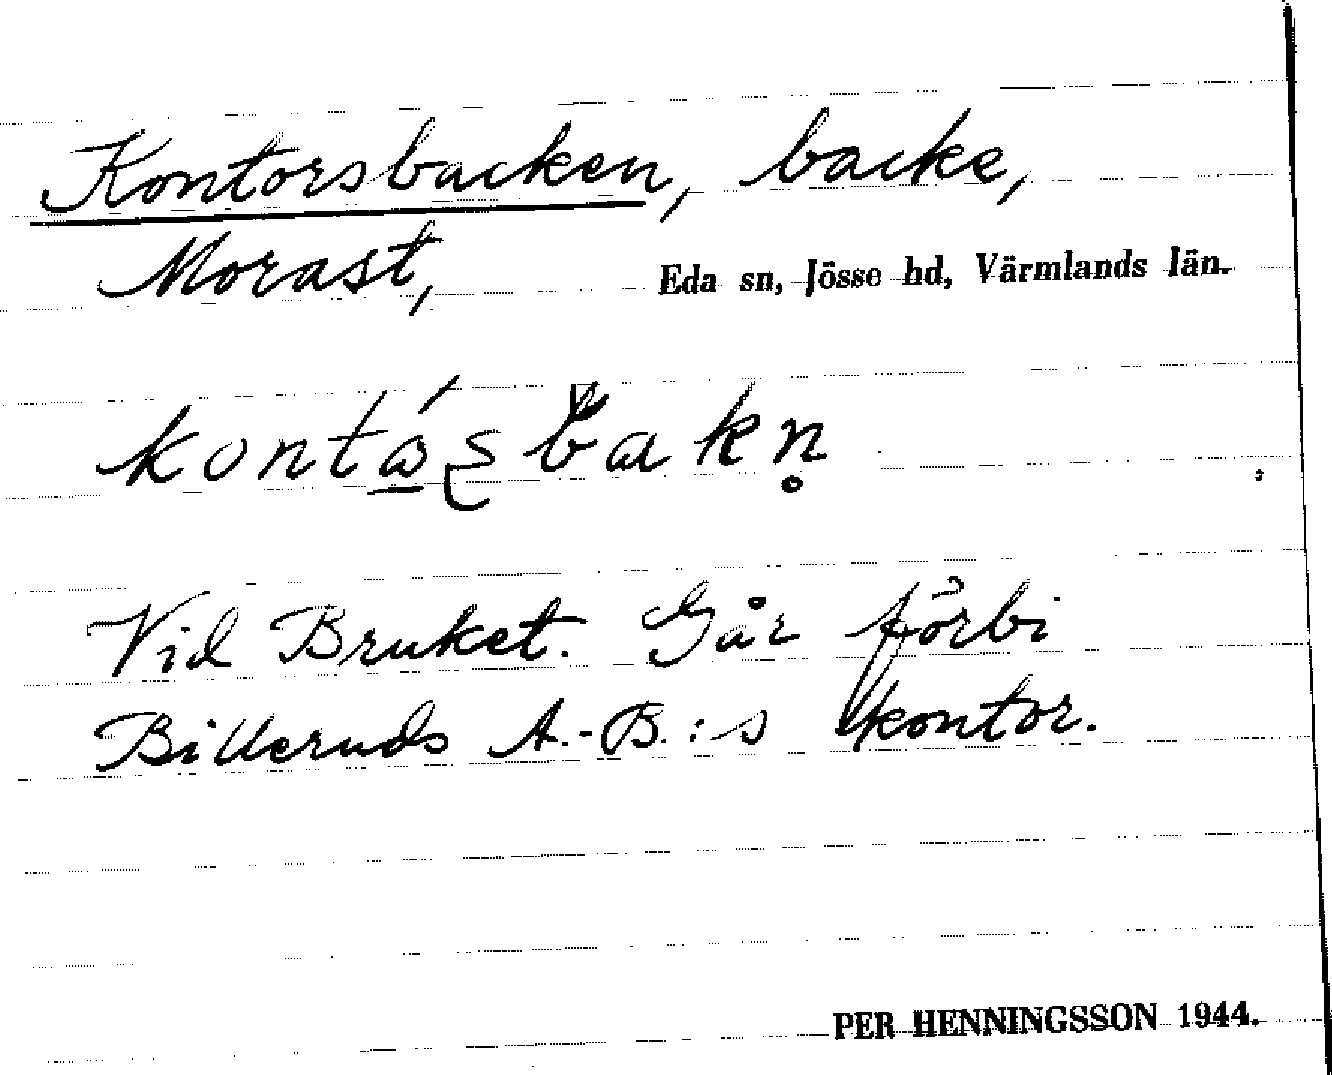 Kontorsbacken, backe,
Morast, Eda sn, Jösse hd, Värmlands län.
Vid Bruket. Går förbi
Billeruds A.-B.:s kontor.
PER HENNINGSSON 1944.